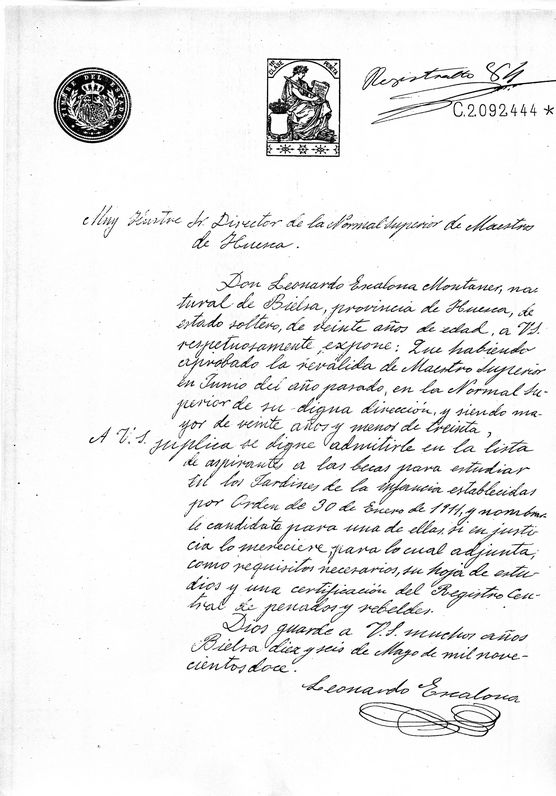 TIMBRE DEL ESTADO
CLASE
PESETA
Registrado 84
C.2092444 *
Muy Ilustre Sr. Director de la Normal Superior de Maestros
de Huesca.
Don Leonardo Escalona Montaner, na-
tural de Bielsa, provincia de Huesca, de
estado soltero, de veinte años de edad, a V.S.
respetuosamente expone: Que habiendo
aprobado la reválida de Maestro Superior
en Junio del año pasado, en la Normal Su-
perior de su digna dirección, y siendo ma-
yor de veinte años y menor de treinta,
A V.S. suplica se digne admitirle en la lista
de aspirantes a las becas para estudiar
en los Jardines de la infancia establecidas
por Orden de 30 de Enero de 1911, y nombrar-
le candidato para una de ellas, si en justi-
cia lo mereciere, para lo cual adjunta,
como requisitos necesarios, su hoja de estu-
dios y una certificación del Registro Cen-
tral de penados y rebeldes.
Dios guarde a V.S. muchos años
Bielsa diez y seis de Mayo de mil nove-
cientos doce.
Leonardo Escalona